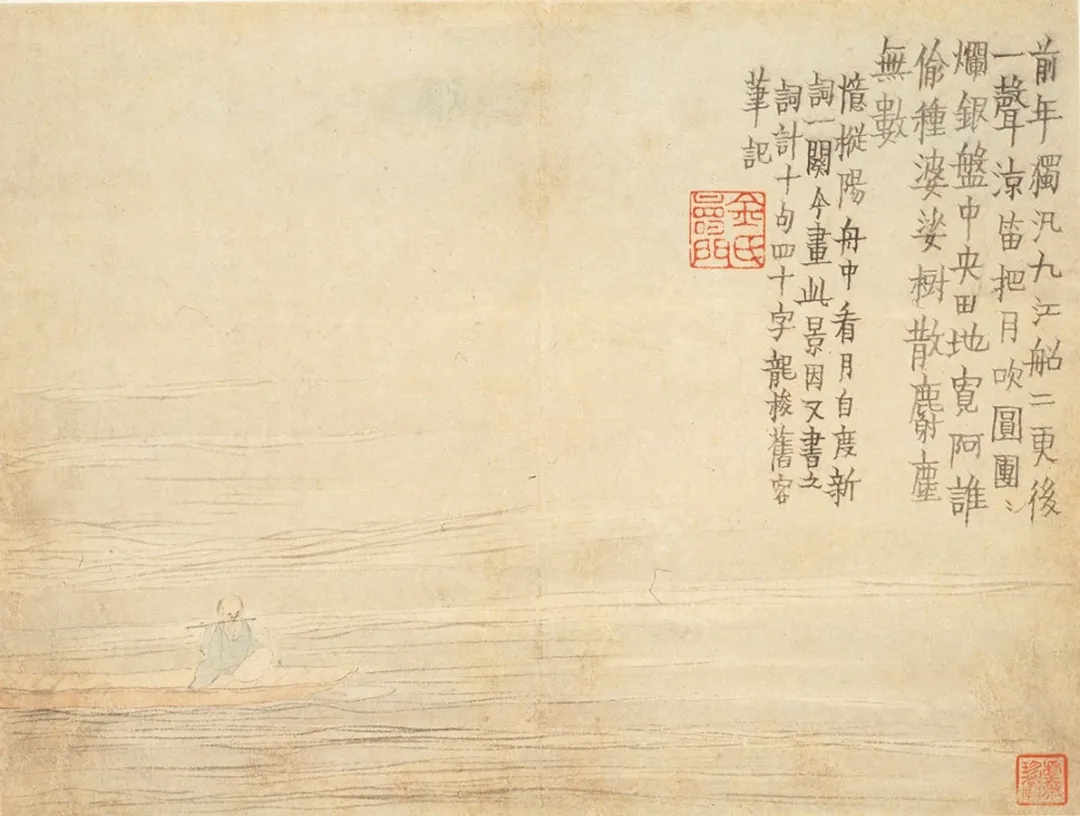 前年獨汎九江船二更後
一聲涼笛把月吹圓團〻
爛銀盤中央田地寬阿誰
偷種婆娑樹散麝塵
無數
憶樅陽舟中看月自度新
詞一闋今畫此景因又書之
詞計十句四十字龍梭舊客
筆記
金氏